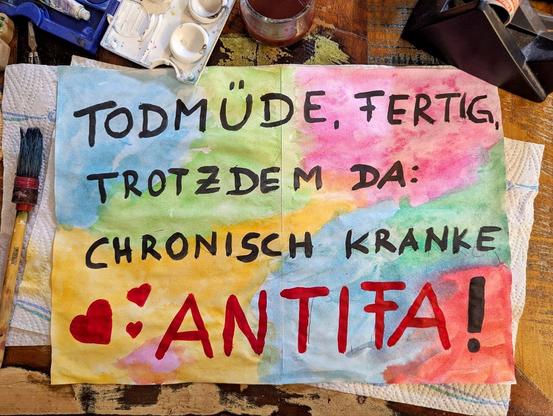 TODMÜDE, FERTIG,
TROTZDEM DA:
CHRONISCH KRANKE
ANTIFA!